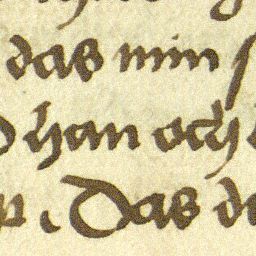 das min
han och
. Das